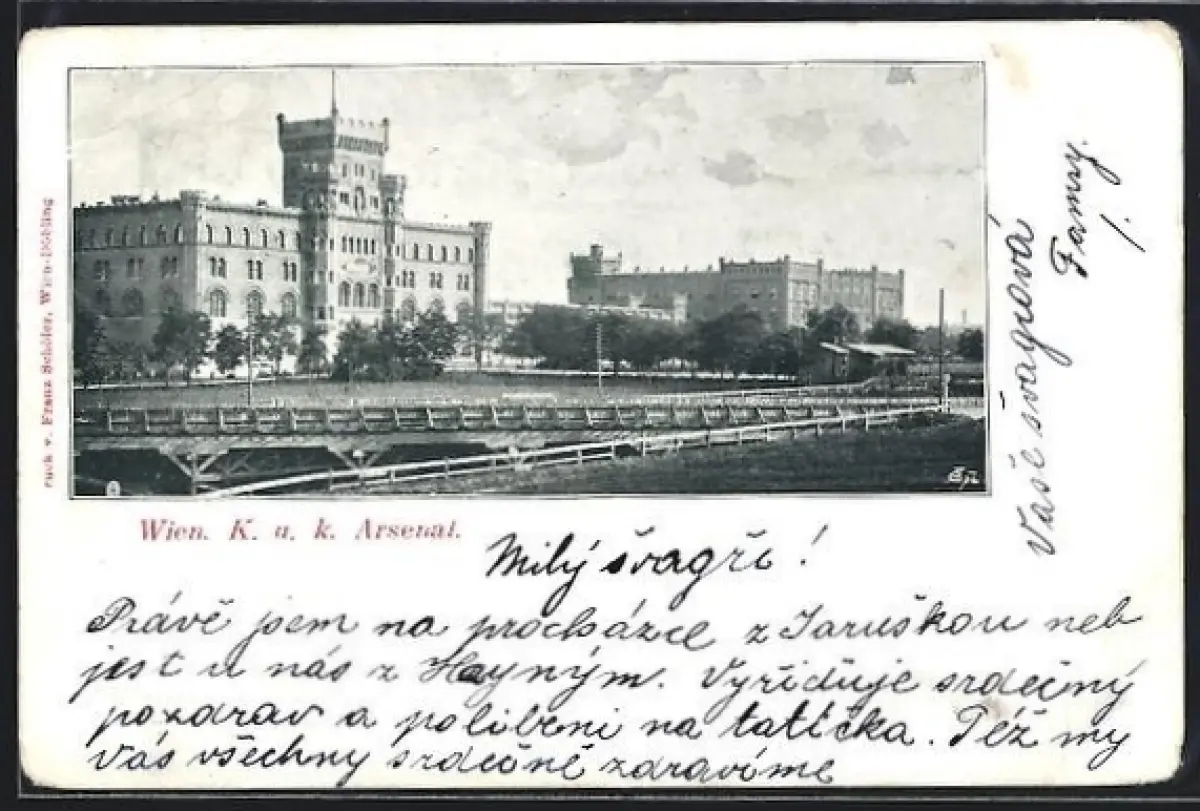 ruck v. Franz Schöler, Wien-Döbling
Wien. K. u. k. Arsenal.
Milý švagře!
Právě jsem na procházce z Jaruškou neb
jest u nás z Hayným. Vyřiďuje srdečný
pozdrav a políbení na tatíčka. Též my
Vás všechny srdečně zdravíme
Vaše švagrová
Fanny.